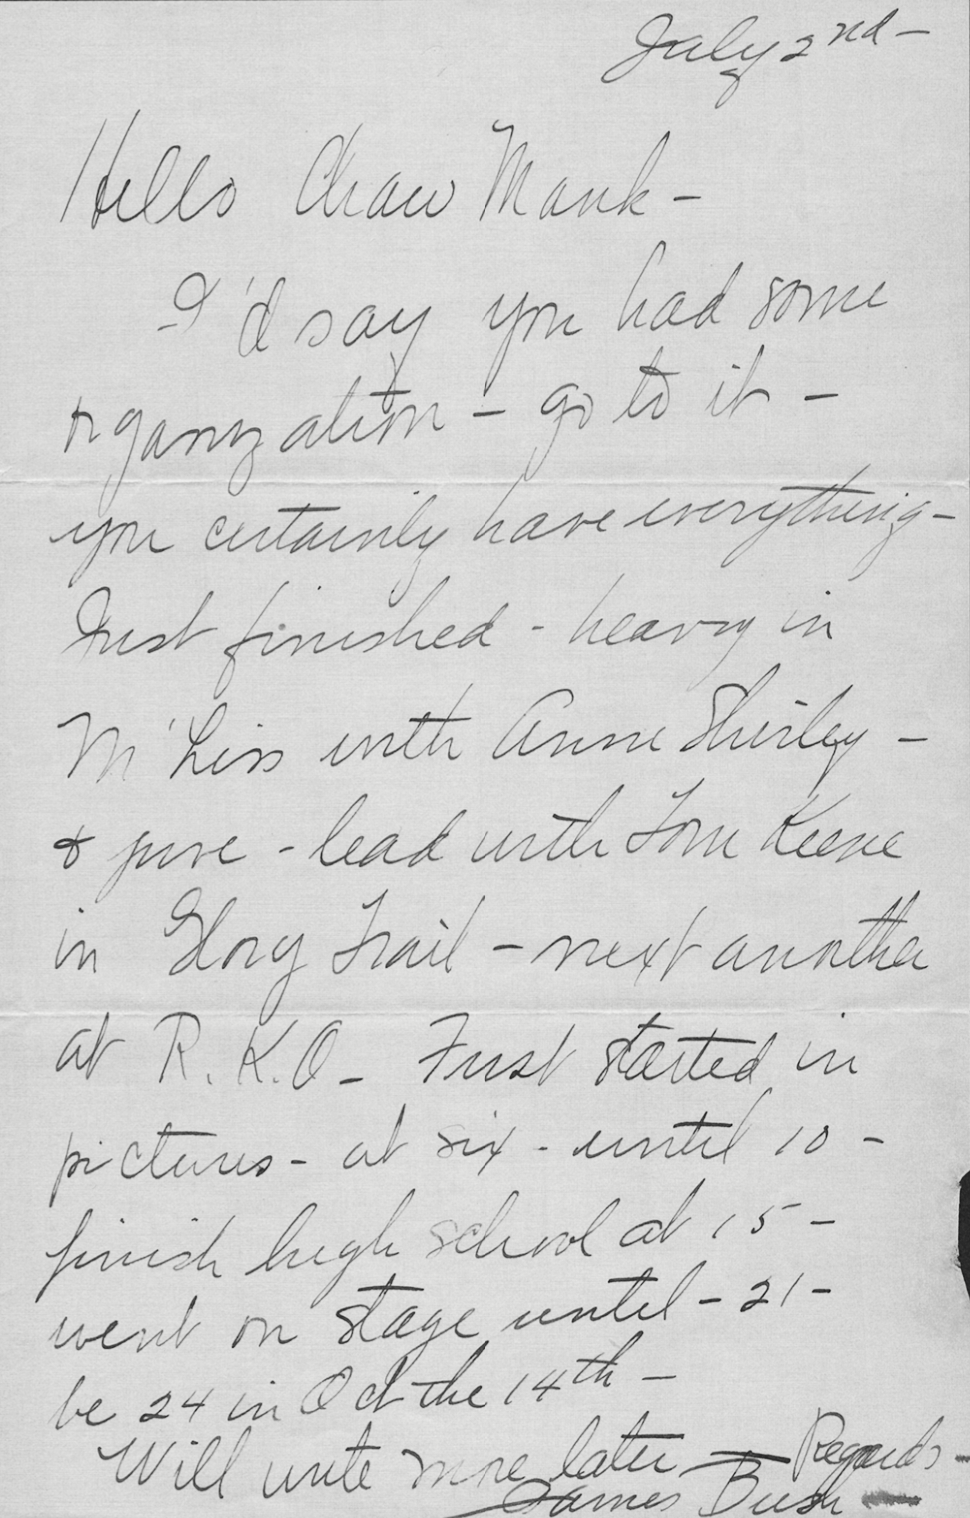 July 2nd -
Hello Chaw Mank -
I'd say you had some
organization - go to it -
you certainly have everything -
Just finished - heavy in
M'Liss with Anne Shirley -
& juve - lead with Tom Keene
in Glory Trail - next another
at R.K.O - First started in
pictures - at six - until 10 -
finish high school at 15 -
went on stage until - 21 -
be 24 in Oct the 14th -
Will write more later - Regards -
James Bush